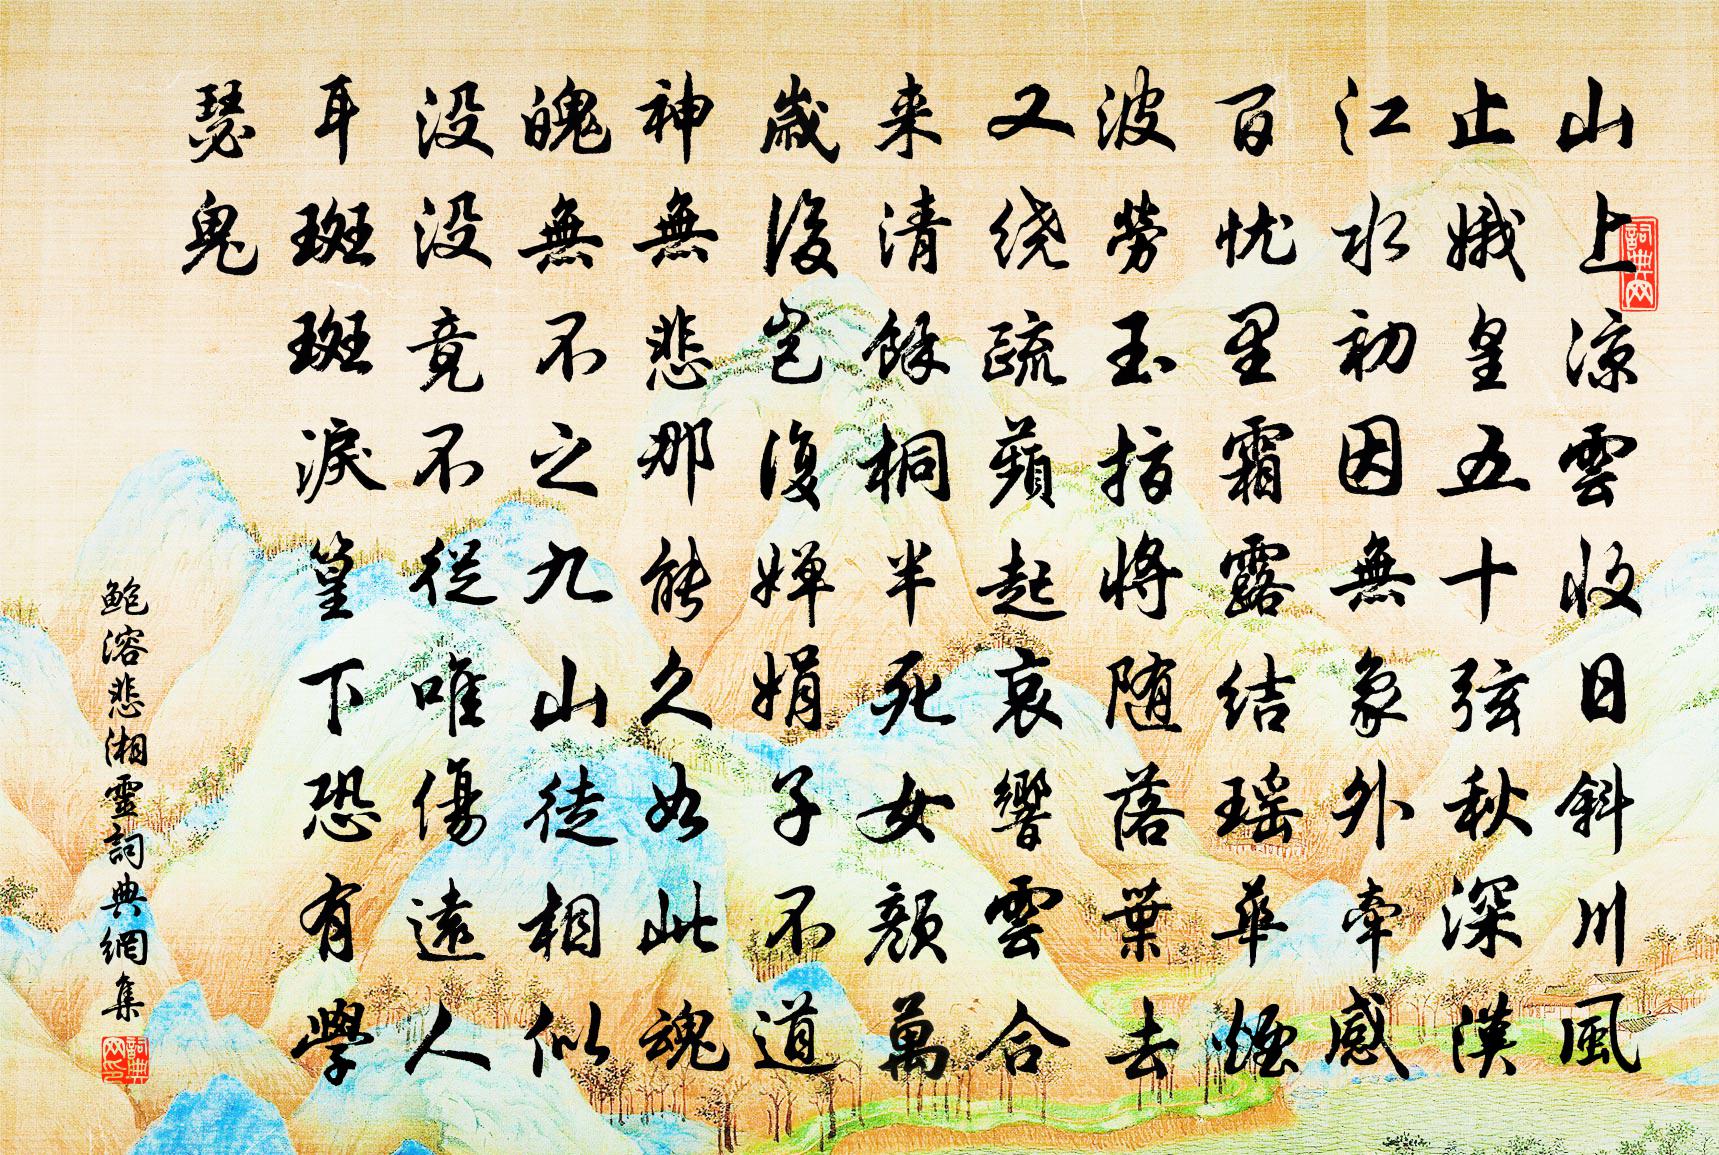 山上涼雲收日斜川風
止娥皇五十弦秋深漢
江水初因無象外牽感
百忧里霜露结瑶華煙
波劳玉指将随落葉去
又绕疏蘋起哀響雲合
来清餘桐半死女顏萬
歲後豈復婵娟子不道
神無悲那能久如此魂
魄無不之九山徒相似
没没竟不從唯傷遠人
耳斑斑淚篁下恐有學
瑟鬼
鮑溶悲湘靈詞典網集
詞典网
詞典网印